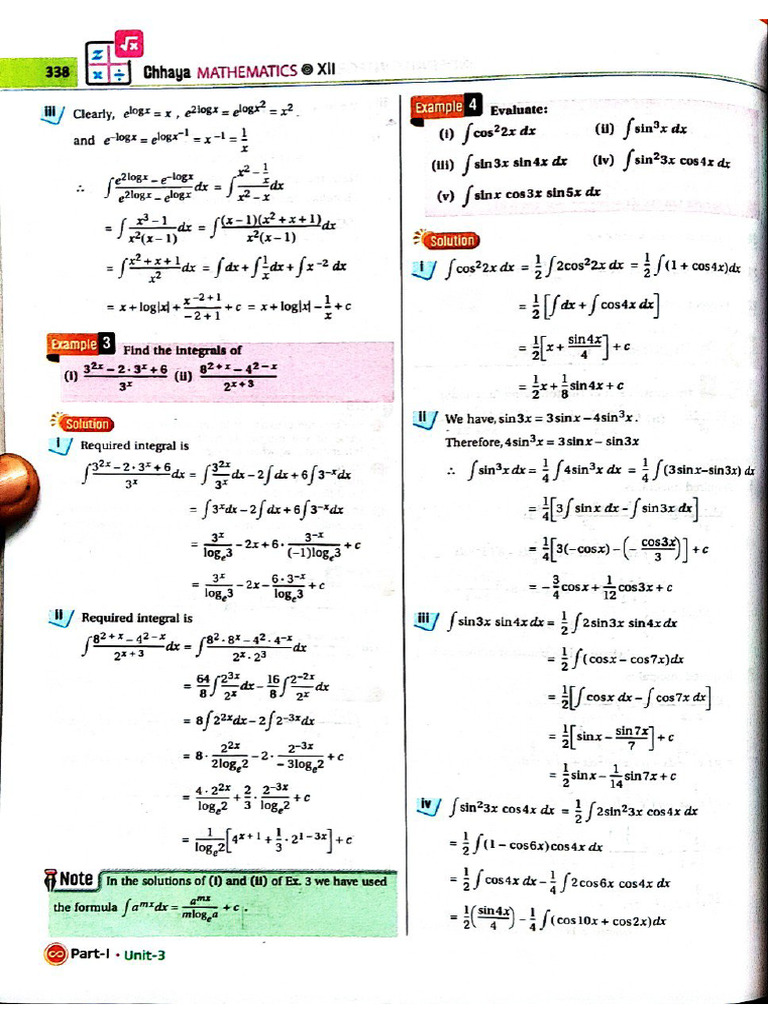 338
Chhaya MATHEMATICS XII
iii Clearly, e^{logx} = x , e^{2logx} = e^{logx^2} = x^2 .
and e^{-logx} = e^{logx^{-1}} = x^{-1} = 1/x
∴ ∫ (e^{2logx} – e^{-logx})/(e^{2logx} – e^{logx}) dx = ∫ (x^2 – 1/x)/(x^2 – x) dx
= ∫ (x^3 – 1)/(x^2(x – 1)) dx = ∫ ((x – 1)(x^2 + x + 1))/(x^2(x – 1)) dx
= ∫ (x^2 + x + 1)/x^2 dx = ∫dx + ∫ 1/x dx + ∫x^{-2} dx
= x + log|x| + x^{-2+1}/(-2+1) + c = x + log|x| – 1/x + c
Example 3 Find the integrals of
(i) (3^{2x} – 2·3^x + 6)/3^x (ii) (8^{2+x} – 4^{2–x})/2^{x+3}
Solution
i Required integral is
∫ (3^{2x} – 2·3^x + 6)/3^x dx = ∫ 3^{2x}/3^x dx – 2∫dx + 6∫3^{-x}dx
= ∫3^x dx – 2∫dx + 6∫3^{-x}dx
= 3^x/log_e3 – 2x + 6· 3^{-x}/((–1)log_e3) + c
= 3^x/log_e3 – 2x – 6·3^{-x}/log_e3 + c
ii Required integral is
∫ (8^{2+x} – 4^{2–x})/2^{x+3} dx = ∫ (8^2·8^x – 4^2·4^{-x})/(2^x·2^3) dx
= 64/8 ∫ 2^{3x}/2^x dx – 16/8 ∫ 2^{-2x}/2^x dx
= 8∫2^{2x}dx – 2∫2^{-3x}dx
= 8· 2^{2x}/(2log_e2) – 2· 2^{-3x}/(–3log_e2) + c
= 4·2^{2x}/log_e2 + 2/3 · 2^{-3x}/log_e2 + c
= 1/log_e2 [4^{x+1} + 1/3 · 2^{1–3x}] + c
Note In the solutions of (i) and (ii) of Ex. 3 we have used
the formula ∫a^{mx}dx = a^{mx}/(mlog_ea) + c .
Part-I • Unit-3
Example 4 Evaluate:
(i) ∫cos^2 2x dx (ii) ∫sin^3x dx
(iii) ∫sin3x sin4x dx (iv) ∫sin^2 3x cos4x dx
(v) ∫sinx cos3x sin5x dx
Solution
i ∫cos^2 2x dx = 1/2 ∫2cos^2 2x dx = 1/2 ∫(1 + cos4x)dx
= 1/2 [∫dx + ∫cos4x dx]
= 1/2 [x + sin4x/4] + c
= 1/2 x + 1/8 sin4x + c
ii We have, sin3x = 3sinx – 4sin^3x .
Therefore, 4sin^3x = 3sinx – sin3x
∴ ∫sin^3x dx = 1/4 ∫4sin^3x dx = 1/4 ∫(3sinx–sin3x) dx
= 1/4 [3∫sinx dx – ∫sin3x dx]
= 1/4 [3(–cosx) – (– cos3x/3)] + c
= – 3/4 cosx + 1/12 cos3x + c
iii ∫sin3x sin4x dx = 1/2 ∫2sin3x sin4x dx
= 1/2 ∫(cosx – cos7x)dx
= 1/2 [∫cosx dx – ∫cos7x dx]
= 1/2 [sinx – sin7x/7] + c
= 1/2 sinx – 1/14 sin7x + c
iv ∫sin^2 3x cos4x dx = 1/2 ∫2sin^2 3x cos4x dx
= 1/2 ∫(1 – cos6x)cos4x dx
= 1/2 ∫cos4x dx – 1/4 ∫2cos6x cos4x dx
= 1/2 (sin4x/4) – 1/4 ∫(cos10x + cos2x)dx